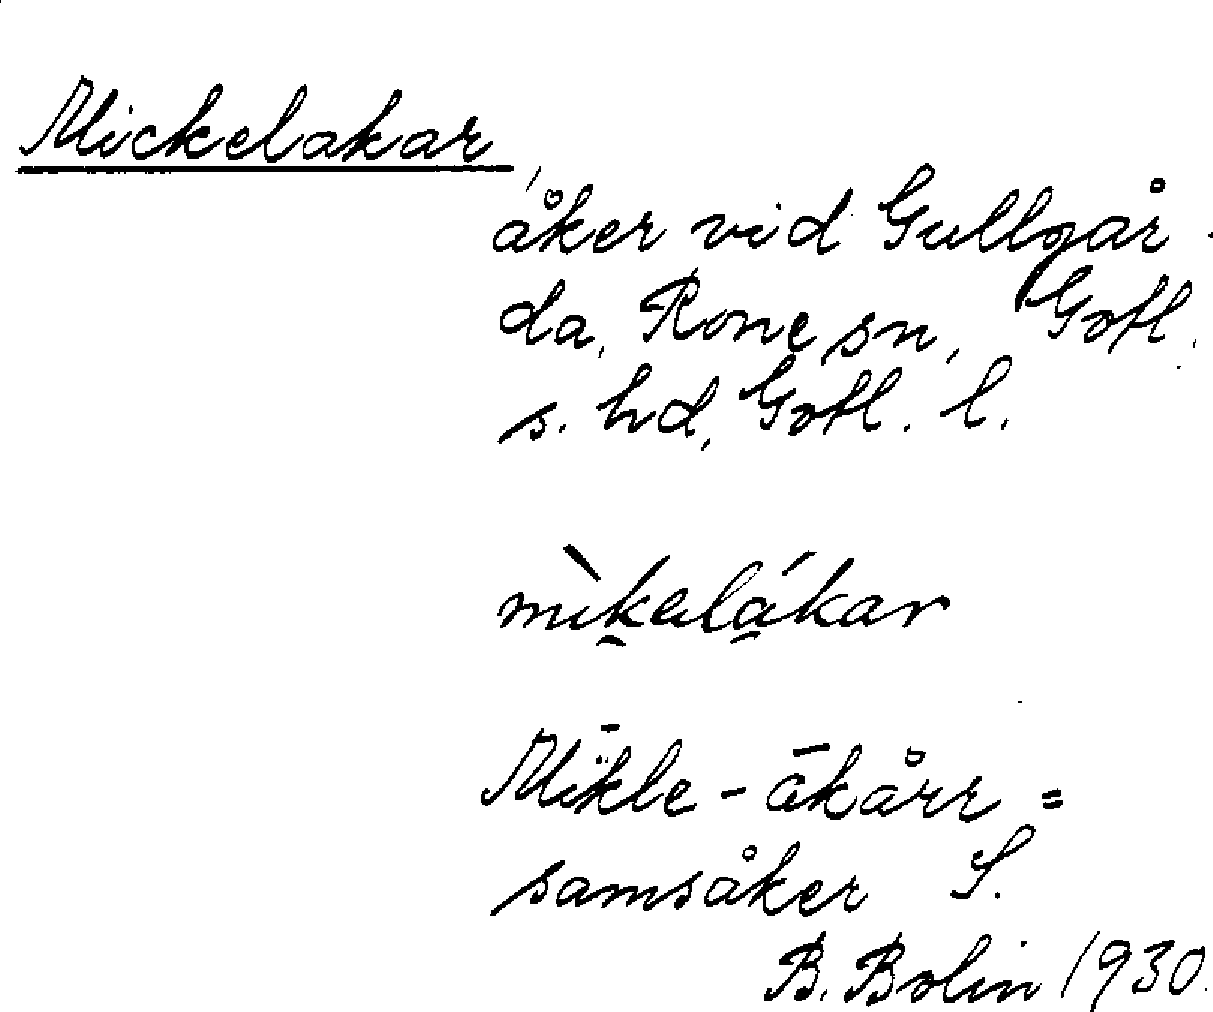 Mickelakar,
åker vid Gullgår-
da, Rone sn, Gotl.
s. hd, Gotl. l.
mìkalákar
Mikle-ākårr =
samsåker S.
B. Bolin 1930.